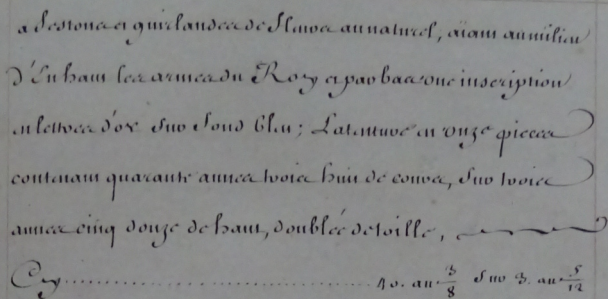 a festons et guirlandes de fleurs au naturel, aiant au milieu
d'Enhaut les armes du Roy et par bas une inscription
en lettres d'or sur fond bleu; Latenture en onze pieces
contenant quarante aunes trois huit de cours, sur trois
aunes cinq douze de haut, doublée de toille,
Cy .................................... 40. au. 3/8 sur 3. au. 5/12